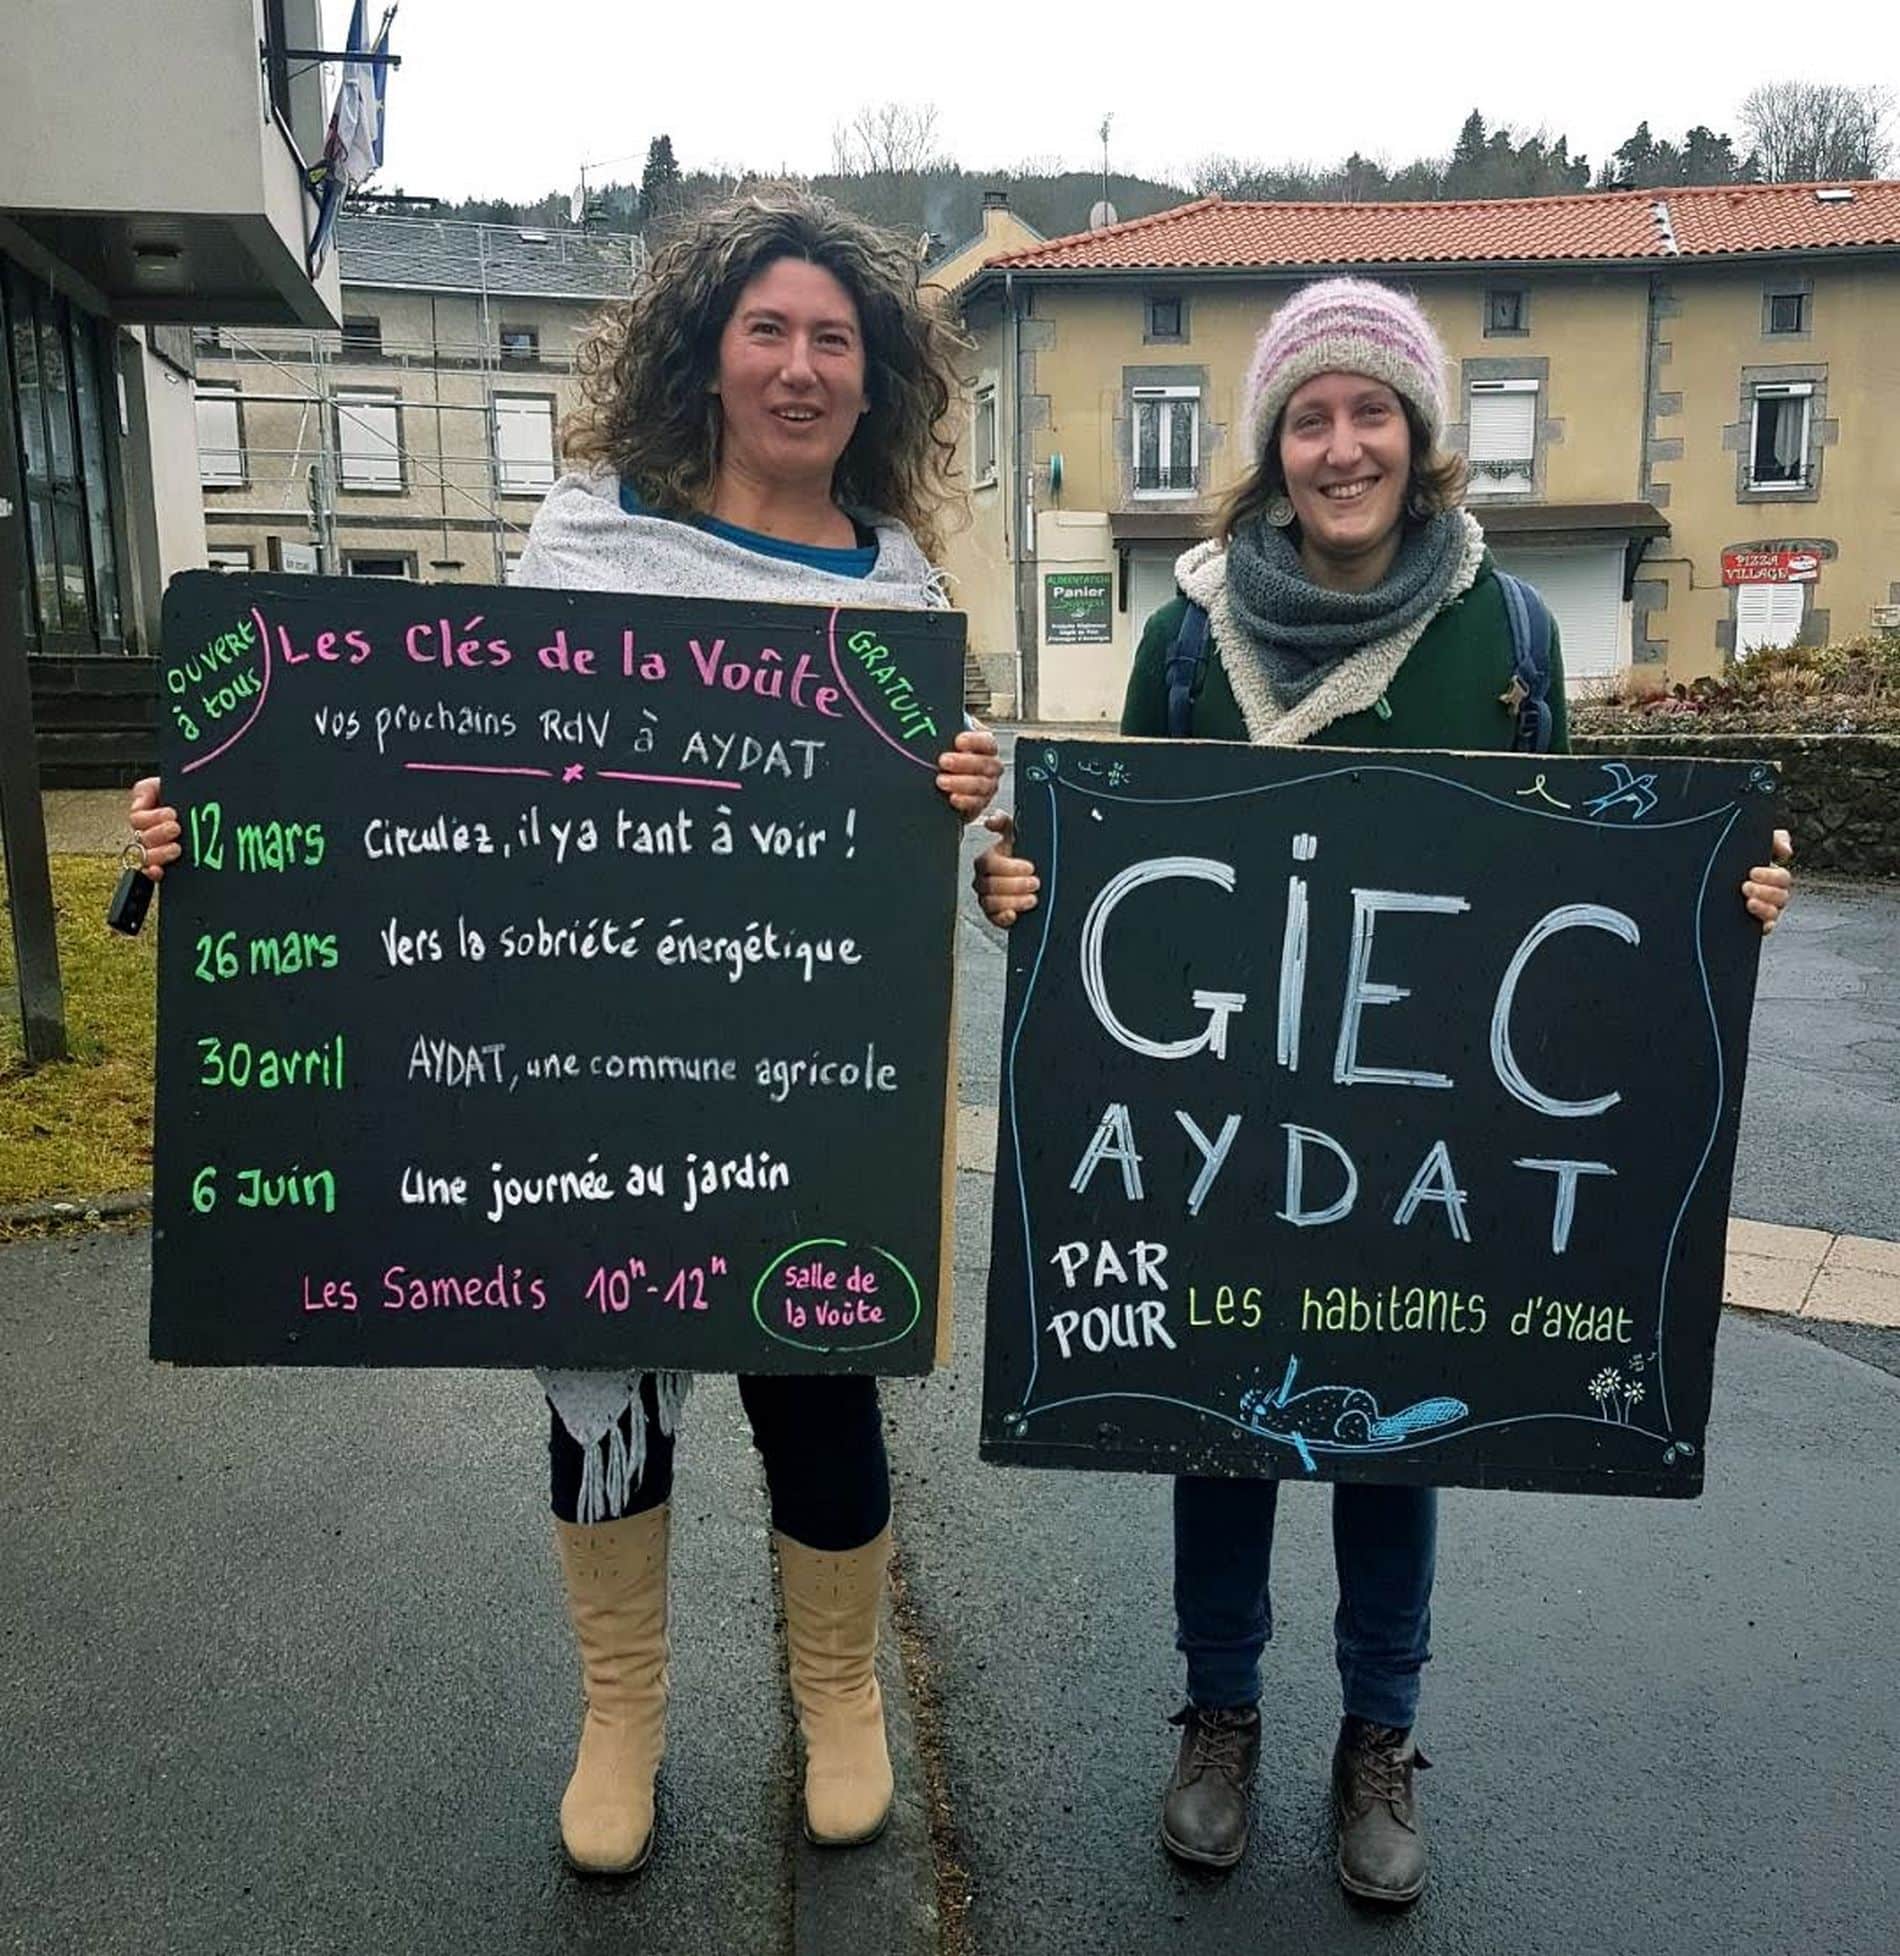 OUVERT
à tous
Les Clés de la Voûte
GRATUIT
vos prochains RdV à AYDAT
12 mars Circulez, il y a tant à voir !
26 mars Vers la sobriété énergétique
30 avril AYDAT, une commune agricole
6 Juin Une journée au jardin
Les Samedis 10h-12h
salle de
la Voûte
GIEC
AYDAT
PAR
POUR
Les habitants d'aydat
ALIMENTATION
Panier
PIZZA
VILLAGE